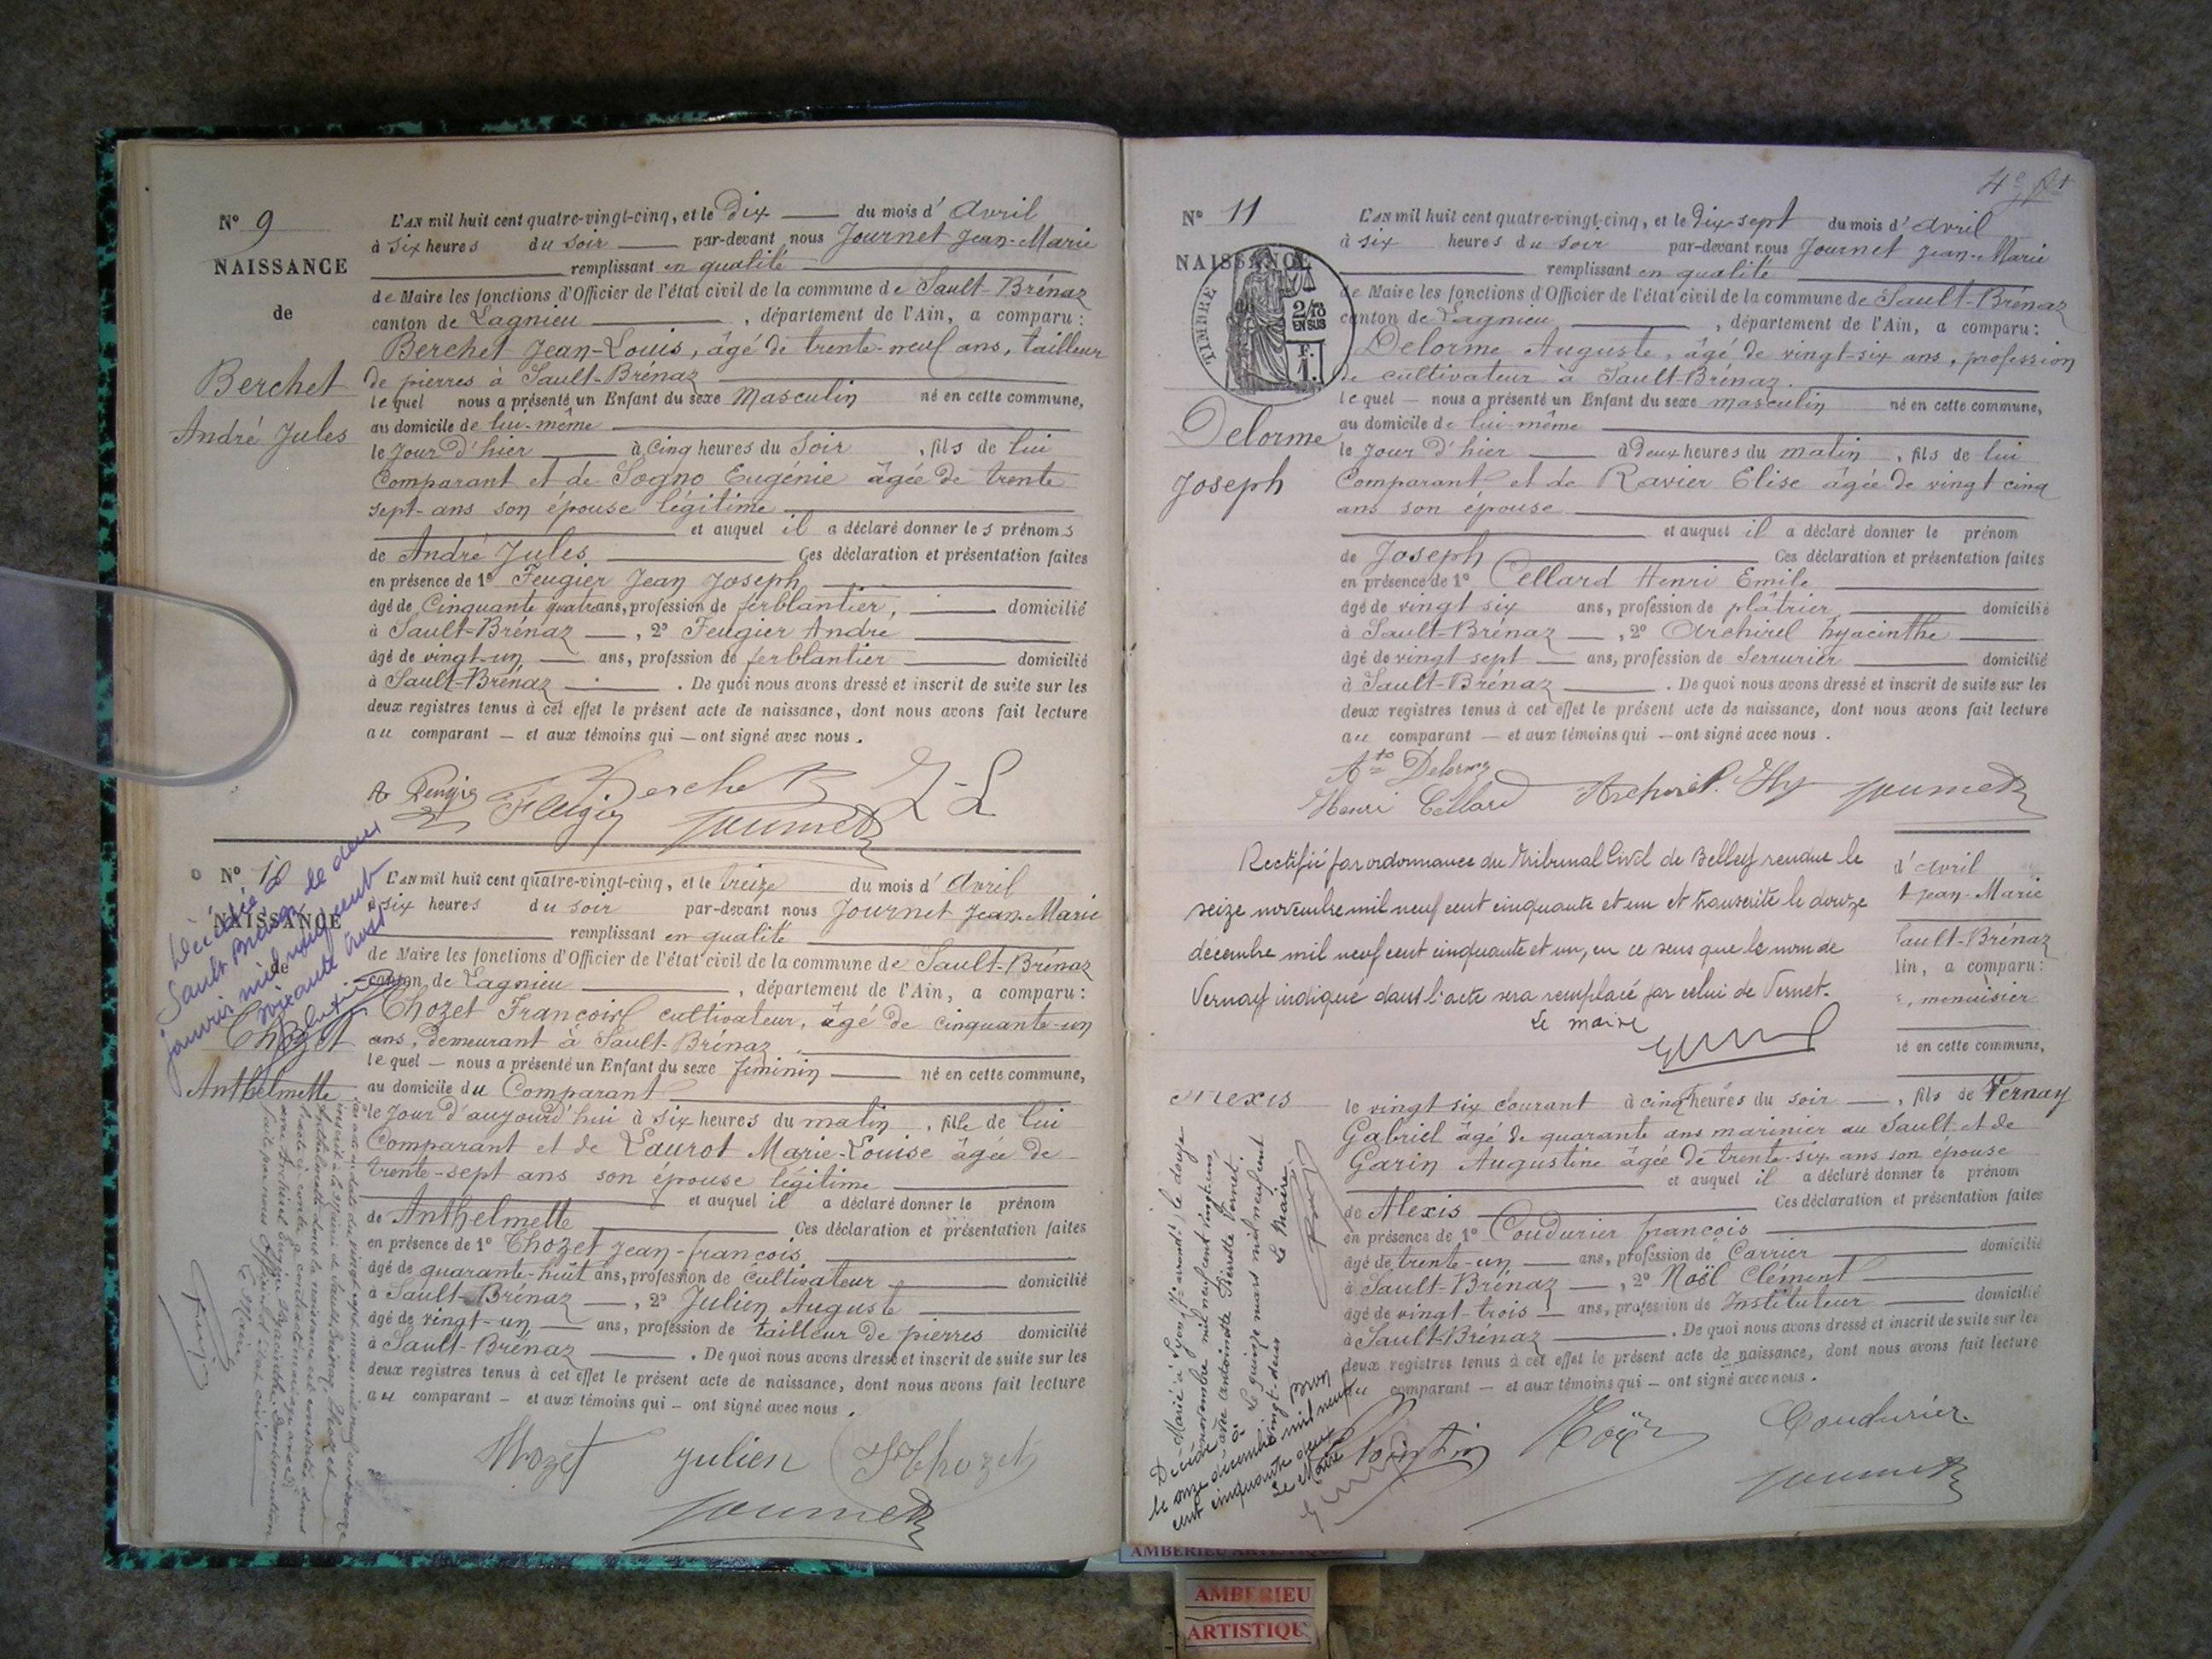 N° 9
NAISSANCE
de
Berchet
André Jules
L'AN mil huit cent quatre-vingt-cinq, et le Dix du mois d'Avril
à six heures du soir par-devant nous Journet Jean-Marie
remplissant en qualité
de Maire les fonctions d'Officier de l'état civil de la commune de Sault-Brénaz
canton de Lagnieu, département de l'Ain, a comparu:
Berchet Jean-Louis, âgé de trente-neuf ans, tailleur
de pierres à Sault-Brénaz
lequel nous a présenté un Enfant du sexe Masculin né en cette commune,
au domicile de lui-même
le Jour d'hier à Cinq heures du Soir, fils de lui
Comparant et de Sogno Eugénie âgée de trente
sept-ans son épouse légitime
et auquel il a déclaré donner les prénoms
de André Jules. Ces déclaration et présentation faites
en présence de 1° Feugier Jean Joseph
âgé de Cinquante quatre ans, profession de ferblantier, domicilié
à Sault-Brénaz, 2° Feugier André
âgé de vingt-un ans, profession de ferblantier domicilié
à Sault-Brénaz. De quoi nous avons dressé et inscrit de suite sur les
deux registres tenus à cet effet le présent acte de naissance, dont nous avons fait lecture
au comparant — et aux témoins qui — ont signé avec nous.
Berchet J-L
Feugier Journet
N° 10
NAISSANCE
de
Chozet
Anthelmette
Décédée à
Sault Brénaz le deux
janvier mil neuf cent
soixante trois
L'AN mil huit cent quatre-vingt-cinq, et le treize du mois d'Avril
à six heures du soir par-devant nous Journet Jean-Marie
remplissant en qualité
de Maire les fonctions d'Officier de l'état civil de la commune de Sault-Brénaz
canton de Lagnieu, département de l'Ain, a comparu:
Chozet François cultivateur, âgé de cinquante-un
ans, demeurant à Sault-Brénaz
lequel — nous a présenté un Enfant du sexe féminin né en cette commune,
au domicile du Comparant
le Jour d'aujourd'hui à six heures du matin, fille de lui
Comparant et de Laurot Marie-Louise âgée de
trente-sept ans son épouse légitime
et auquel il a déclaré donner le prénom
de Anthelmette Ces déclaration et présentation faites
en présence de 1° Chozet Jean-françois
âgé de quarante-huit ans, profession de cultivateur domicilié
à Sault-Brénaz, 2° Julien Auguste
âgé de vingt-un ans, profession de tailleur de pierres domicilié
à Sault-Brénaz. De quoi nous avons dressé et inscrit de suite sur les
deux registres tenus à cet effet le présent acte de naissance, dont nous avons fait lecture
au comparant — et aux témoins qui — ont signé avec nous.
Chozet Julien Chozet
Journet
N° 11
NAISSANCE
TIMBRE
2/10
EN SUS
F.
1.
Delorme
Joseph
L'AN mil huit cent quatre-vingt-cinq, et le Dix-sept du mois d'Avril
à six heures du soir par-devant nous Journet Jean-Marie
remplissant en qualité
de Maire les fonctions d'Officier de l'état civil de la commune de Sault-Brénaz
canton de Lagnieu, département de l'Ain, a comparu:
Delorme Auguste, âgé de vingt-six ans, profession
de cultivateur à Sault-Brénaz.
lequel — nous a présenté un Enfant du sexe masculin né en cette commune,
au domicile de lui-même
le Jour d'hier à Deux heures du matin, fils de lui
Comparant et de Ravier Elise âgée de vingt cinq
ans son épouse
et auquel il a déclaré donner le prénom
de Joseph Ces déclaration et présentation faites
en présence de 1° Cellard Henri Emile
âgé de vingt six ans, profession de plâtrier domicilié
à Sault-Brénaz, 2° Archirel hyacinthe
âgé de vingt sept ans, profession de Serrurier domicilié
à Sault-Brénaz. De quoi nous avons dressé et inscrit de suite sur les
deux registres tenus à cet effet le présent acte de naissance, dont nous avons fait lecture
au comparant — et aux témoins qui — ont signé avec nous.
Ate Delorme
Henri Cellard Archirel Hy Journet
Rectifié par ordonnance du Tribunal Civil de Belley rendue le
seize novembre mil neuf cent cinquante et un et transcrite le douze
décembre mil neuf cent cinquante et un, en ce sens que le nom de
Vernay indiqué dans l'acte sera remplacé par celui de Vernet.
Le maire
d'avril
t Jean-Marie
Sault-Brénaz
in, a comparu:
, menuisier
né en cette commune,
Alexis
le vingt six courant à cinq heures du soir, fils de Vernay
Gabriel âgé de quarante ans marinier au Sault et de
Garin Augustine âgée de trente-six ans son épouse
et auquel il a déclaré donner le prénom
de Alexis Ces déclaration et présentation faites
en présence de 1° Coudurier françois
âgé de trente-un ans, profession de Carrier domicilié
à Sault-Brénaz, 2° Noël Clément
âgé de vingt-trois ans, profession de Instituteur domicilié
à Sault-Brénaz. De quoi nous avons dressé et inscrit de suite sur les
deux registres tenus à cet effet le présent acte de naissance, dont nous avons fait lecture
au comparant — et aux témoins qui — ont signé avec nous.
Noël Coudurier
Journet
Marié à Lyon, le douze
novembre mil neuf cent vingt-un,
avec Antoinette Pierrette Vernet.
Le quinze mars mil neuf cent
vingt-deux Le Maire.
Décédé à Bron
le onze décembre mil neuf
cent cinquante deux
Le Maire
AMBERIEU ARTISTIQUE
AMBERIEU
ARTISTIQU